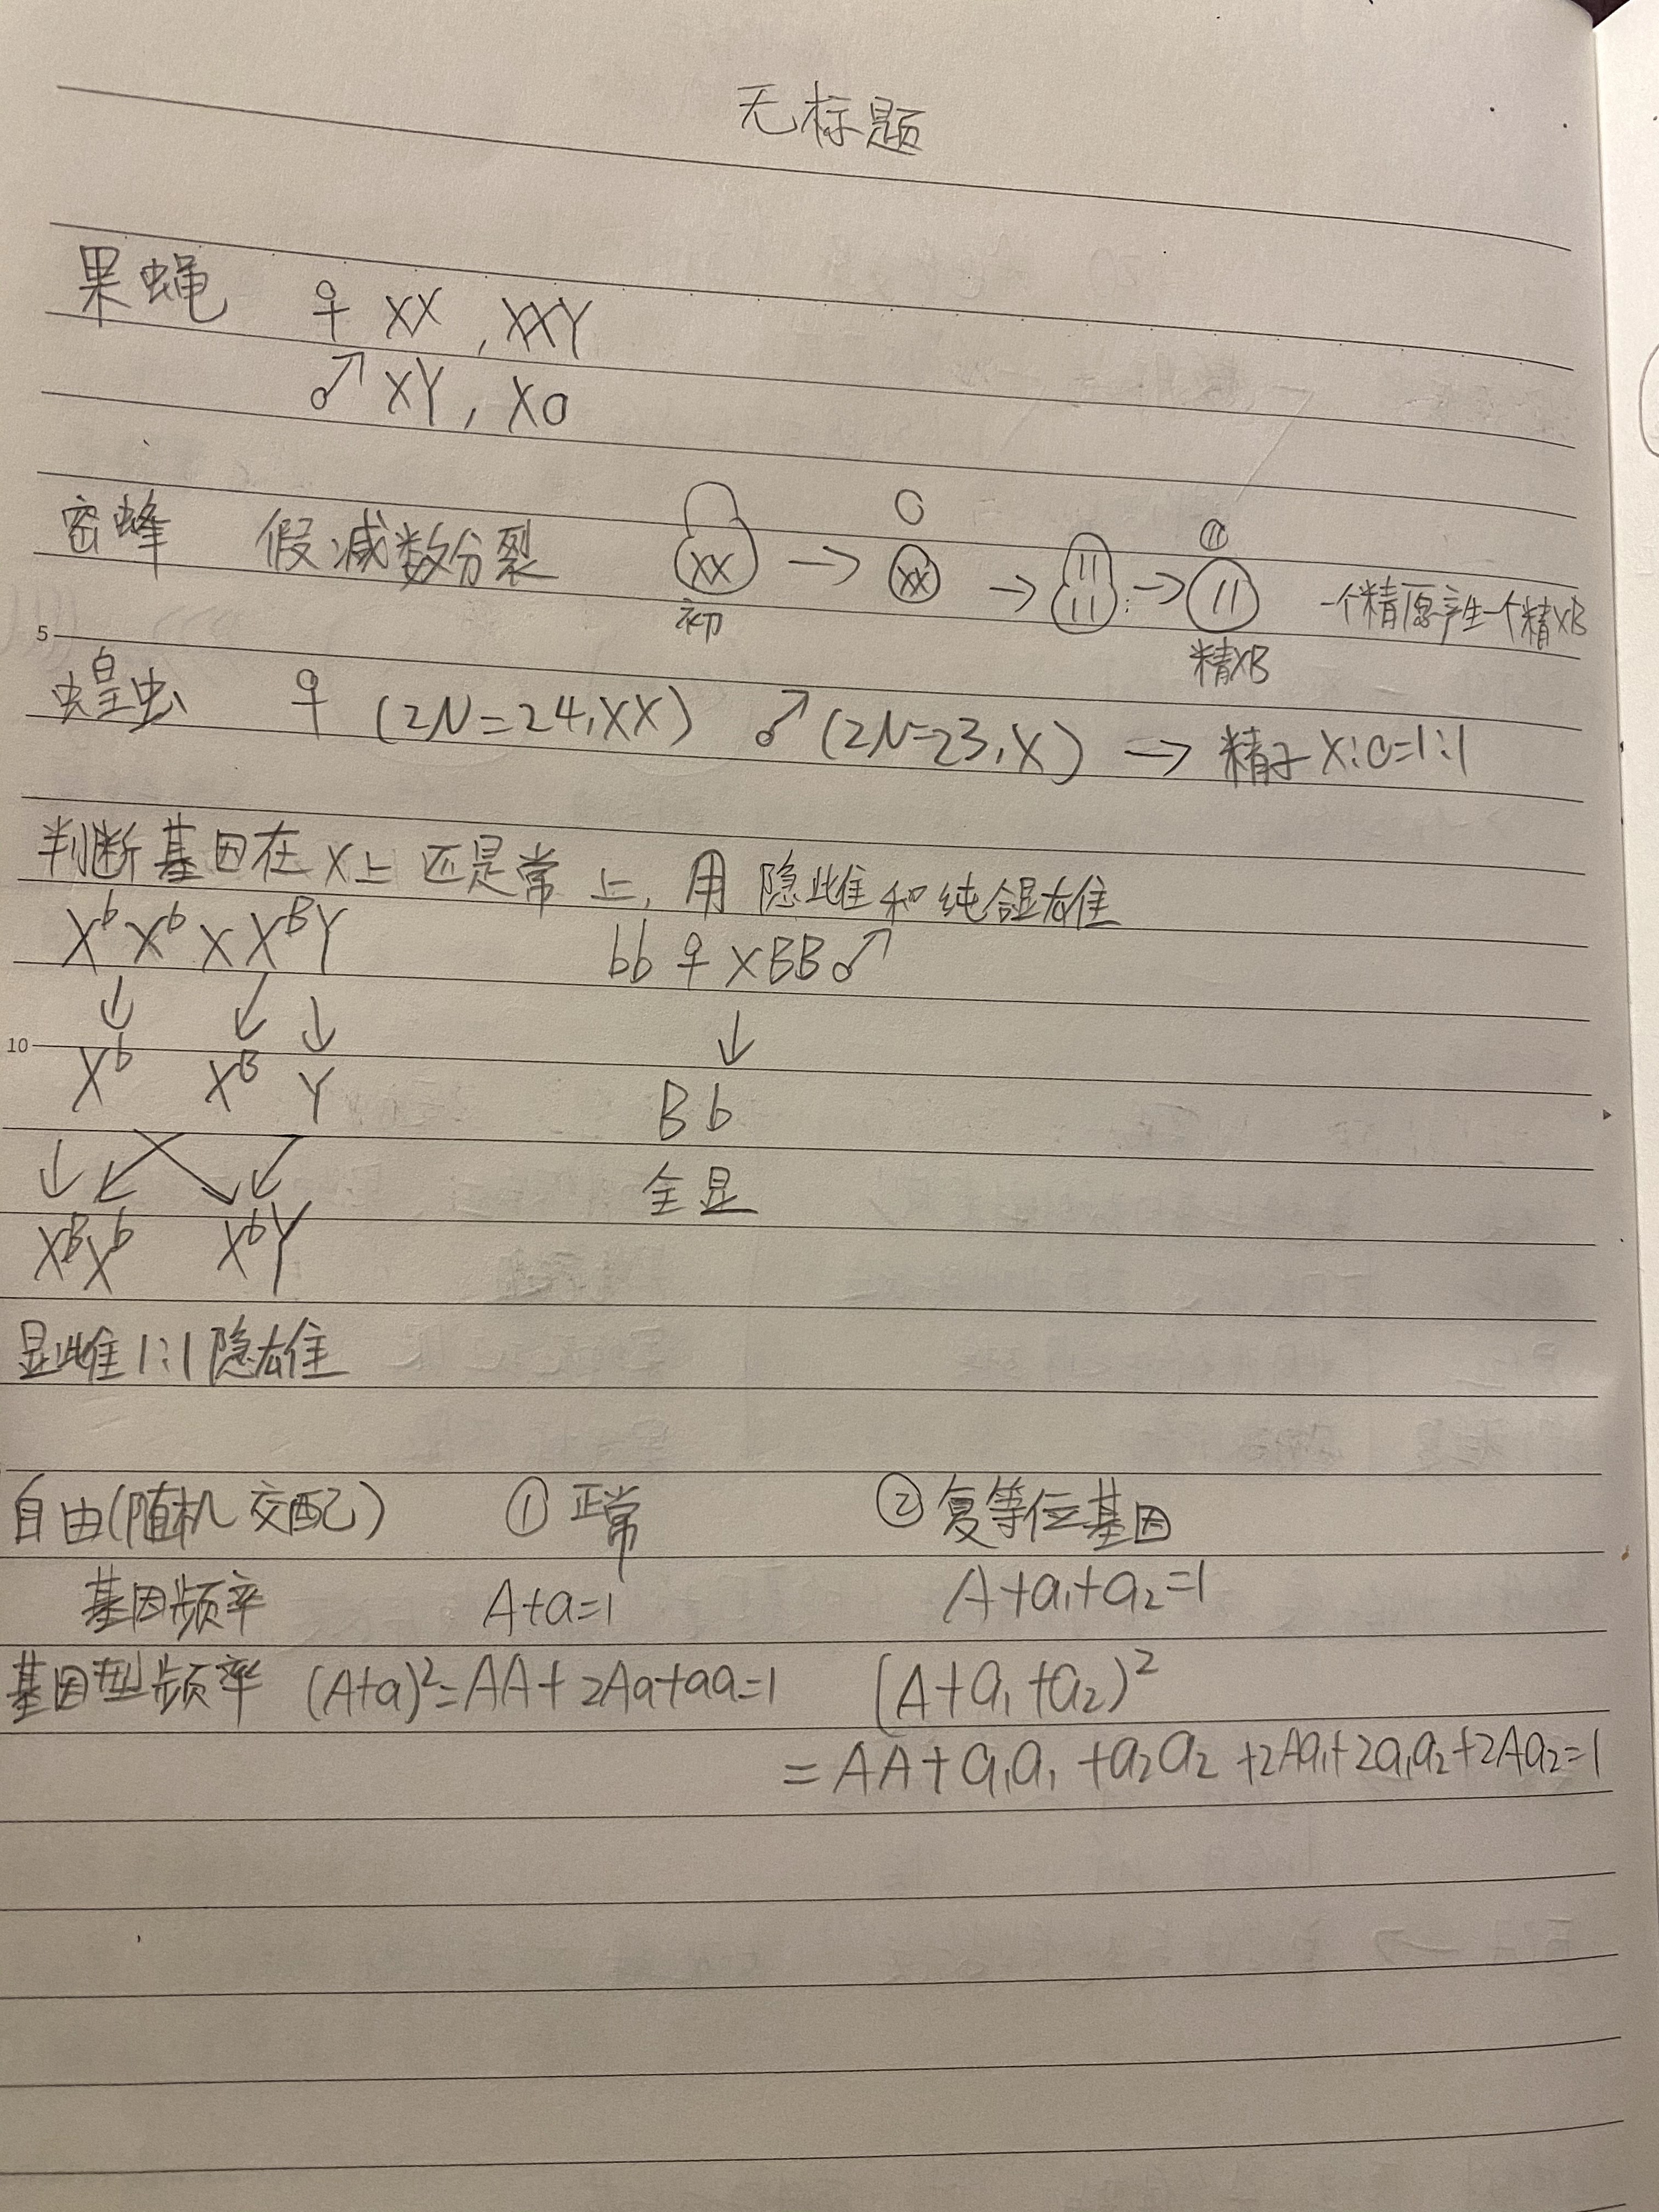 无标题
果蝇 ♀ XX, XXY
♂ XY, XO
蜜蜂 假减数分裂 XX → XX → → 一个精原产生一个精细
5
精细
蝗虫 ♀ (2N=24,XX) ♂ (2N=23,X) → 精子 X:O=1:1
判断基因在X上还是常上, 用隐雌和纯合显雄
XᵇXᵇ × XᴮY bb♀ × BB♂
↓ ↓ ↓
10
Xᵇ Xᴮ Y ↓
Bb
全显
XᴮXᵇ XᵇY
显雌1:1隐雄
自由(随机交配) ①正常 ②复等位基因
基因频率 A+a=1 A+a₁+a₂=1
基因型频率 (A+a)²=AA+2Aa+aa=1 (A+a₁+a₂)²
=AA+a₁a₁+a₂a₂+2Aa₁+2a₁a₂+2Aa₂=1